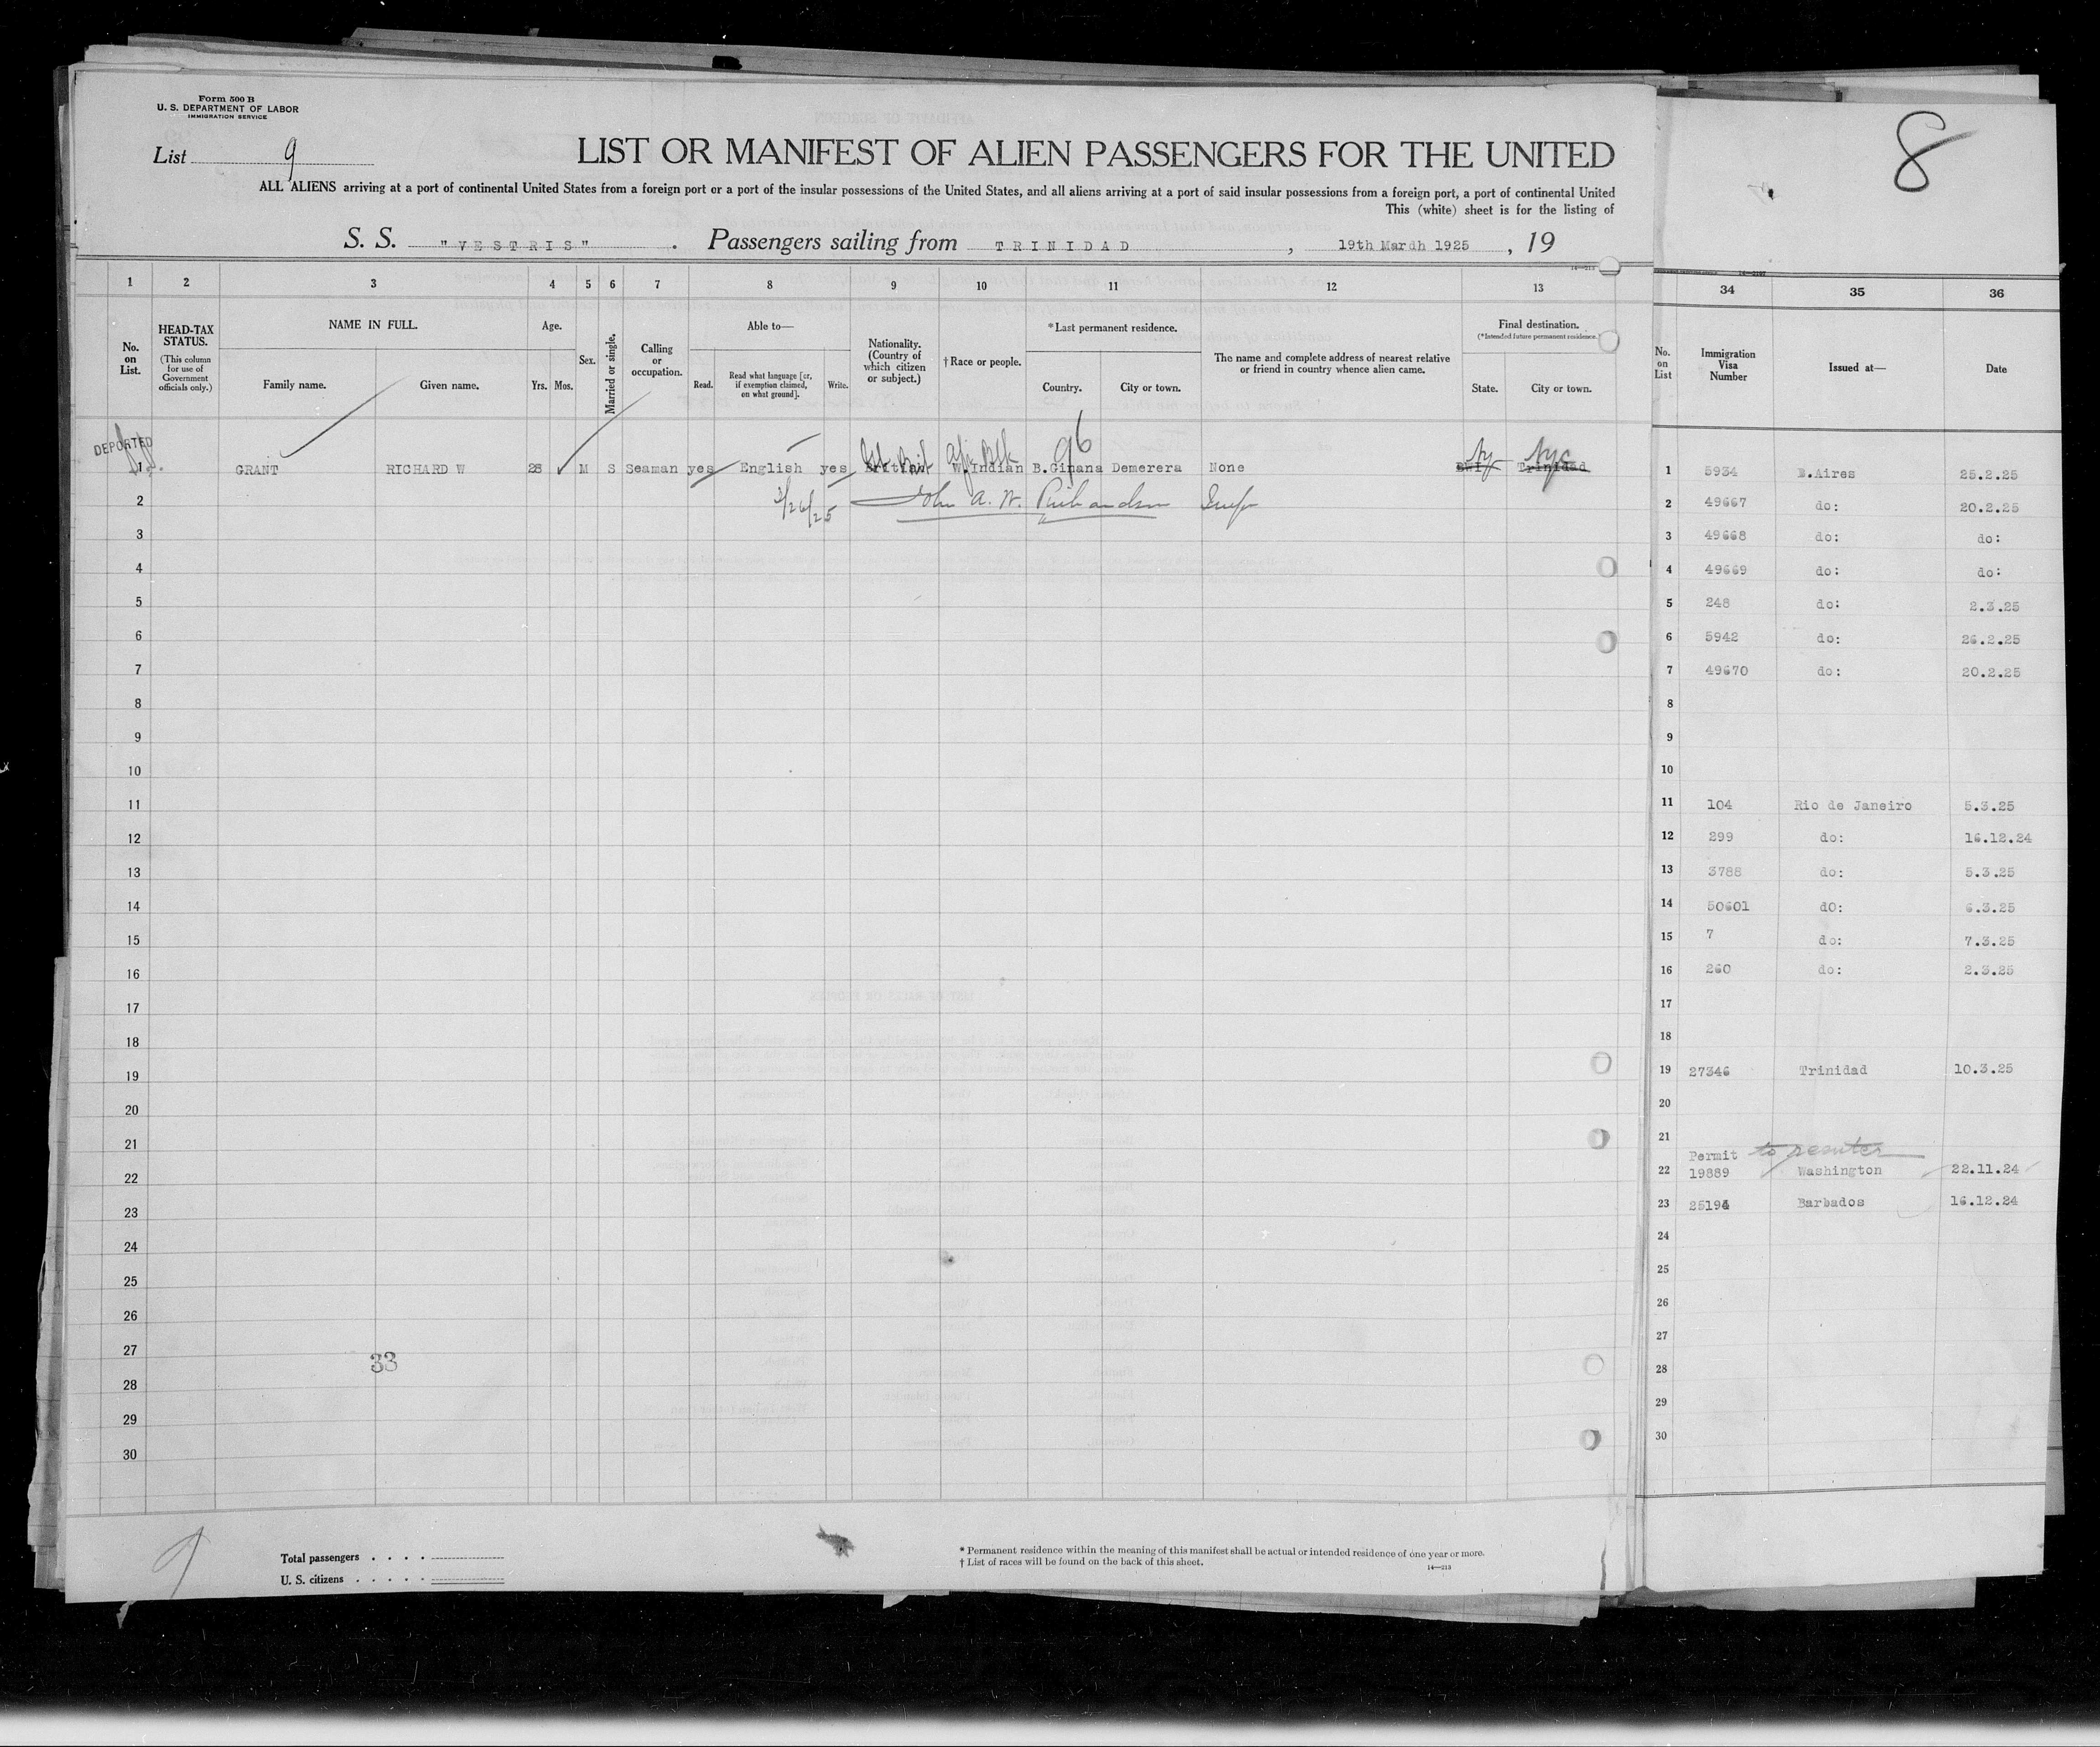 Form 500 B
U. S. DEPARTMENT OF LABOR
IMMIGRATION SERVICE
List 9
LIST OR MANIFEST OF ALIEN PASSENGERS FOR THE UNITED
ALL ALIENS arriving at a port of continental United States from a foreign port or a port of the insular possessions of the United States, and all aliens arriving at a port of said insular possessions from a foreign port, a port of continental United
This (white) sheet is for the listing of
S. S. "VESTRIS" . Passengers sailing from TRINIDAD , 19th Mardh 1925 , 19
8
14—213
1 2 3 4 5 6 7 8 9 10 11 12 13
34 35 36
No. on List.
HEAD-TAX STATUS.
(This column for use of Government officials only.)
NAME IN FULL.
Family name. Given name.
Age.
Yrs. Mos.
Sex.
Married or single.
Calling or occupation.
Able to—
Read. Read what language [or, if exemption claimed, on what ground]. Write.
Nationality. (Country of which citizen or subject.)
†Race or people.
*Last permanent residence.
Country. City or town.
The name and complete address of nearest relative or friend in country whence alien came.
Final destination.
(*Intended future permanent residence.)
State. City or town.
No. on List
Immigration Visa Number
Issued at—
Date
DEPORTED
Afr Blk 96 Ny Nyc
1 GRANT RICHARD W 28 M S Seaman yes English yes British W.Indian B.Ginana Demerera None BWI Trinidad
2 3/26/25 John A. W. Richardson Insp
3
4
5
6
7
8
9
10
11
12
13
14
15
16
17
18
19
20
21
22
23
24
25
26
27
33
28
29
30
1 5934 B.Aires 25.2.25
2 49667 do: 20.2.25
3 49668 do: do:
4 49669 do: do:
5 248 do: 2.3.25
6 5942 do: 26.2.25
7 49670 do: 20.2.25
8
9
10
11 104 Rio de Janeiro 5.3.25
12 299 do: 16.12.24
13 3788 do: 5.3.25
14 50601 dO: 6.3.25
15 7 do: 7.3.25
16 260 do: 2.3.25
17
18
19 27346 Trinidad 10.3.25
20
21
Permit to reenter
22 19889 Washington 22.11.24
23 25194 Barbados 16.12.24
24
25
26
27
28
29
30
9
Total passengers . . . .
U. S. citizens . . . . .
* Permanent residence within the meaning of this manifest shall be actual or intended residence of one year or more.
† List of races will be found on the back of this sheet.
14—213